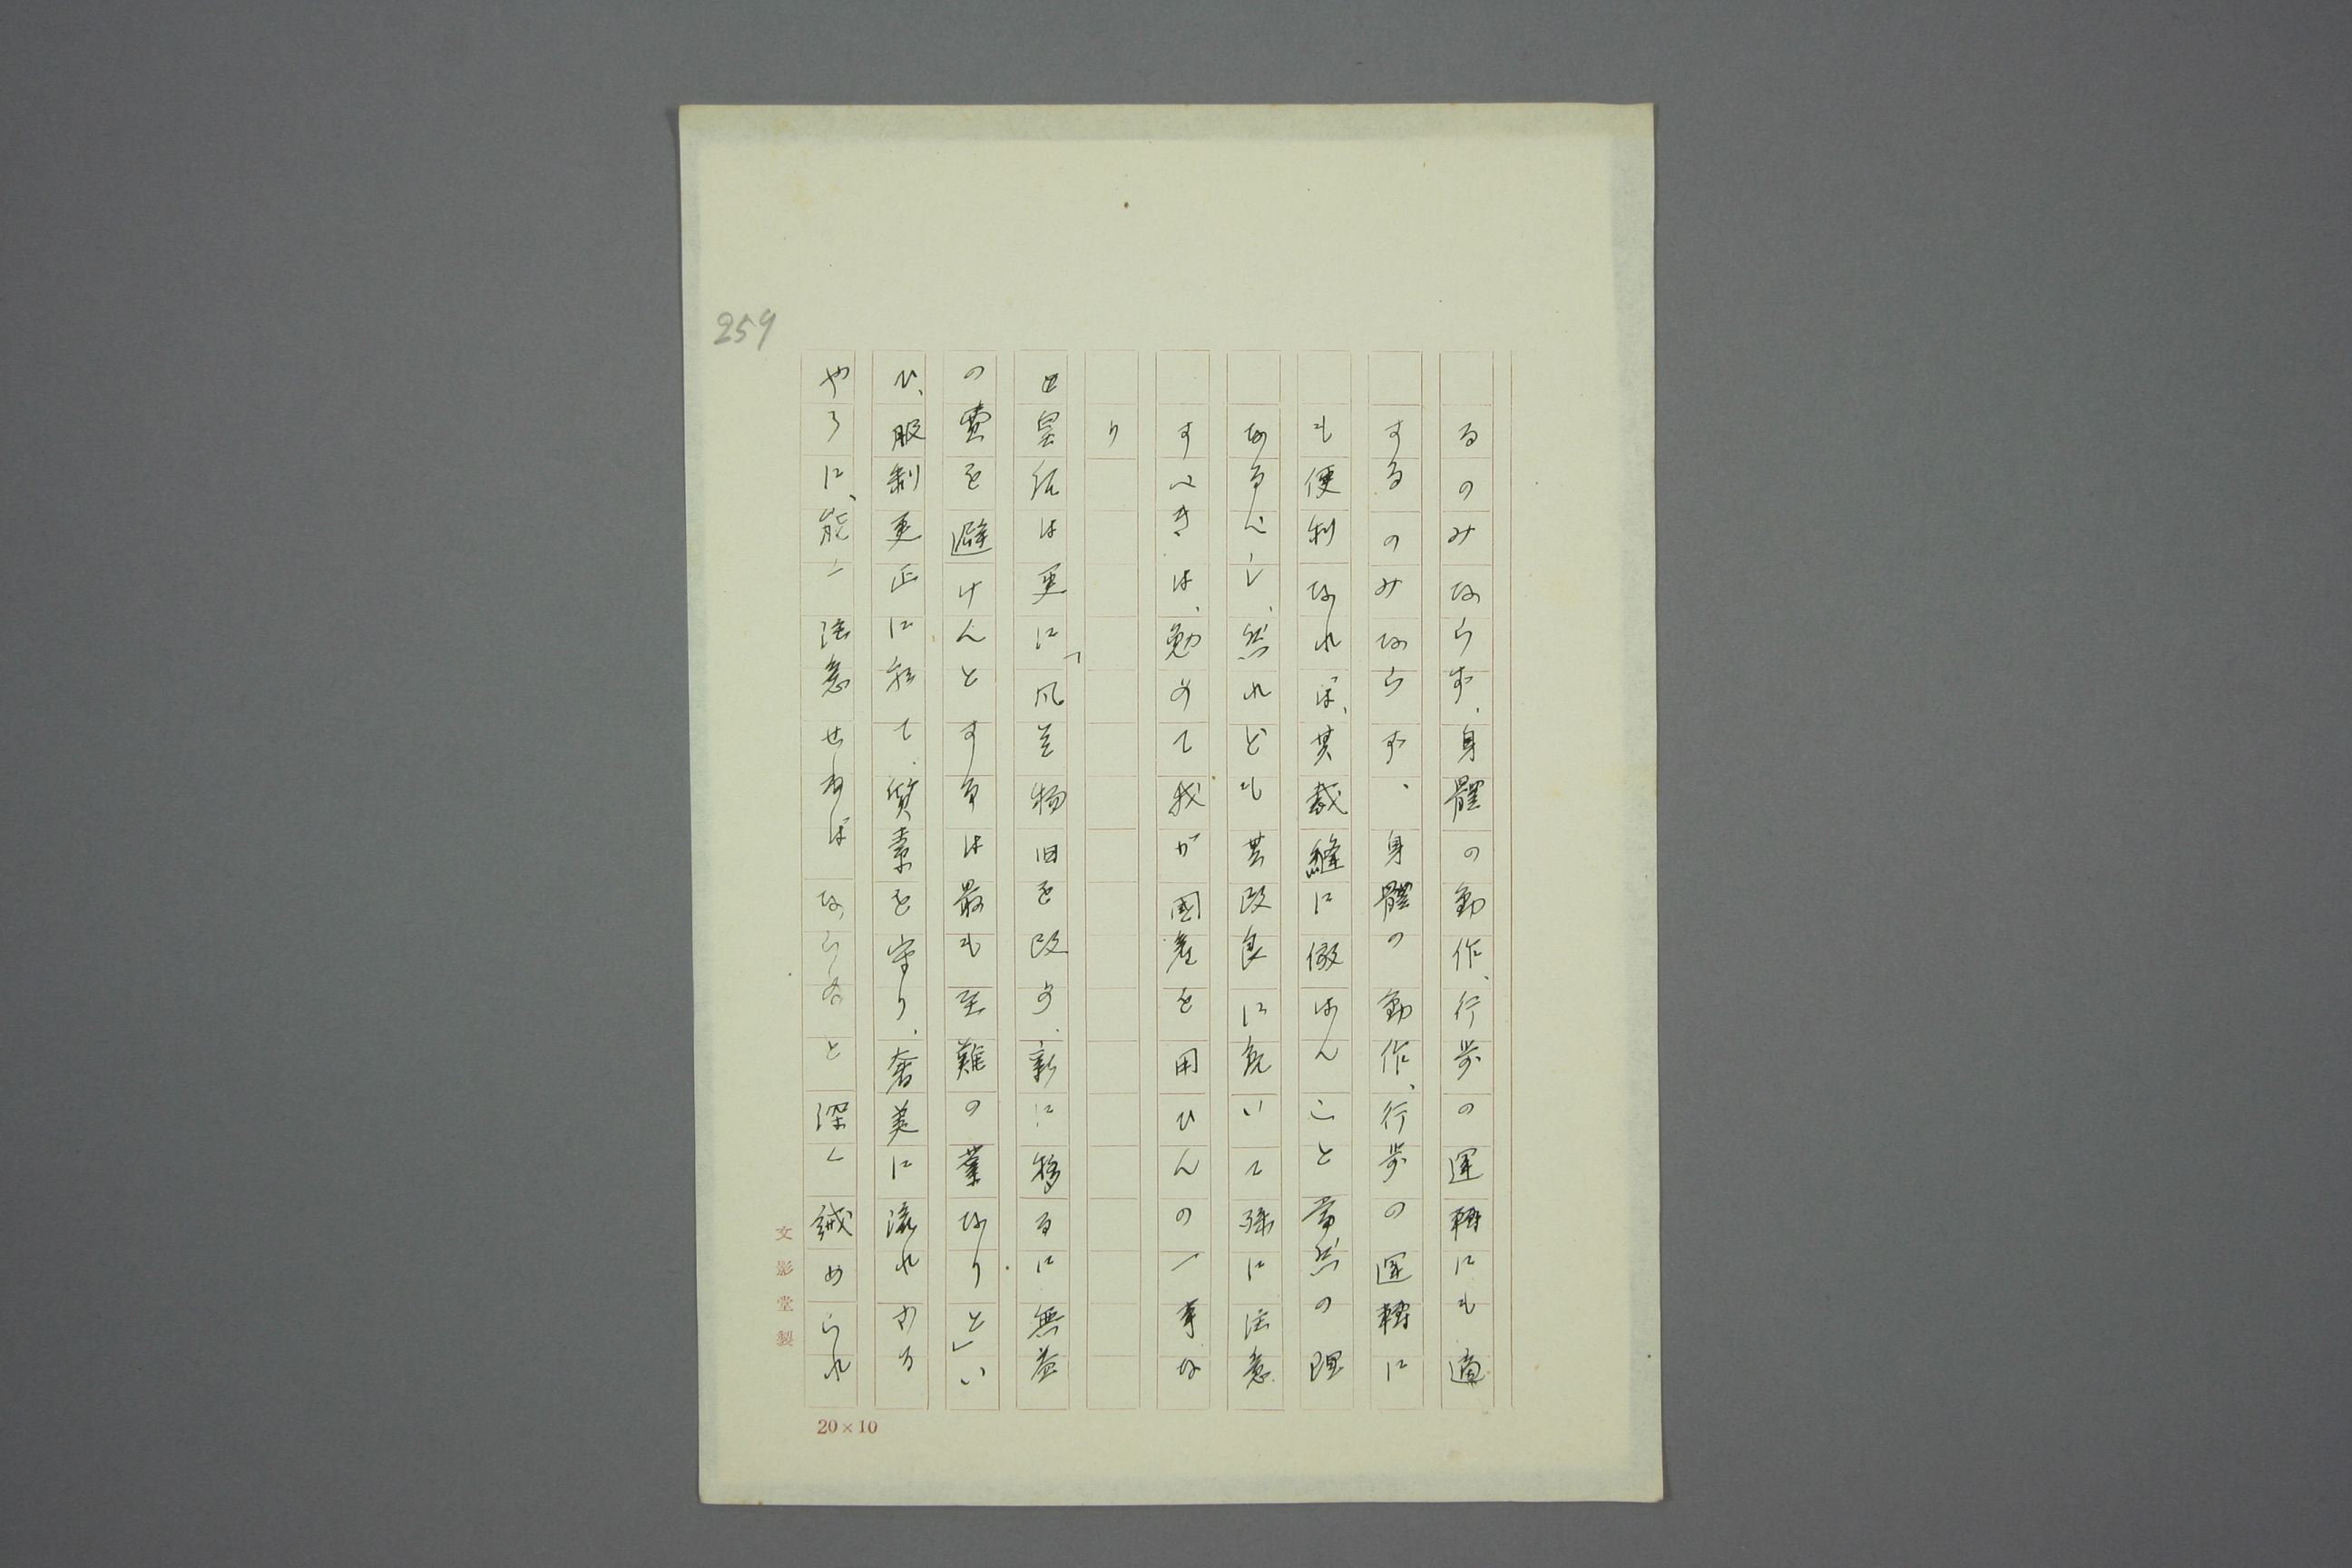 るのみならず、身體の動作、行歩の運轉にも適
するのみならず、身體の動作、行歩の運轉に
も便利なれば、其裁縫に傚はんこと當然の理
なるべし、然れども其改良に就いて殊に注意
すべきは、勉めて我が國産を用ひんの一事な
り
皇后は更に「凡そ物旧を改め、新に移るに無益
の費を避けんとする は最も至難の業なりと」い
ひ、服制更正に於て、質素を守り、奢美に流れざる
やうに、能く注意せねばならぬと深く誡められ
259
20×10
文影堂製